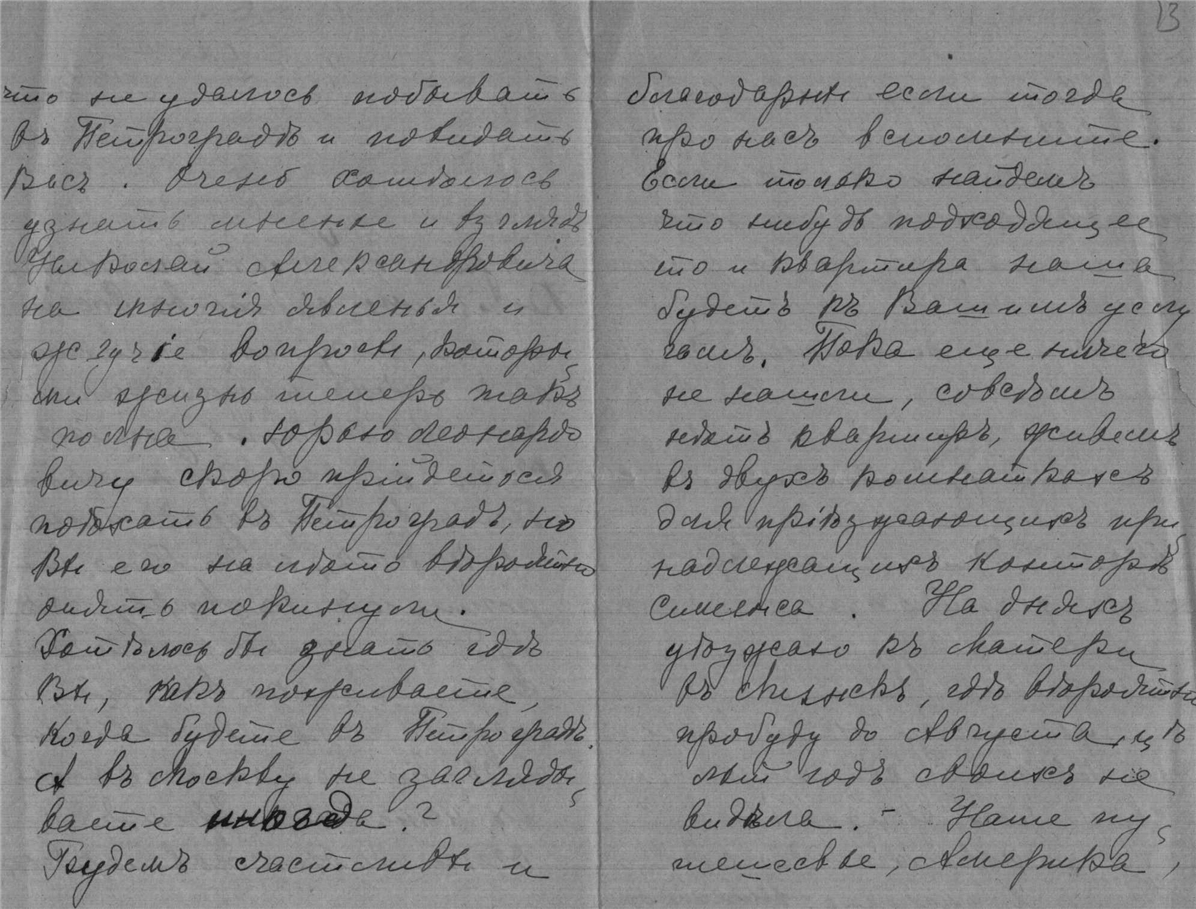 что не удалось побывать
въ Петроградѣ и повидать
Васъ. Очень хотѣлось
узнать мненье и взглядъ
Николай Александровича
на многія явленья и
жгучіе вопросы, которы
ми жизнь теперь такъ
полна. Юрью Леонардо
вичу скоро прійдется
поѣхать въ Петроградъ, но
Вы его на лѣто вѣроятно
опять покинули.
Хотѣлось бы знать гдѣ
Вы, какъ поживаете,
когда будете въ Петроградѣ.
А въ Москву не загляды
ваете иногда?
Будемъ счастливы и
13
благодарны если тогда
про насъ вспомните.
Если только найдемъ
что нибудь подходящее
то и квартира наша
будетъ къ Вашимъ услу
гамъ. Пока еще ничего
не нашли, совсѣмъ
нѣтъ квартиръ, живемъ
въ двухъ комнаткахъ
для пріѣзжающихъ при
надлежащихъ конторѣ
Сименса. На дняхъ
уѣзжаю къ матери
въ Минскъ, гдѣ вѣроятно
пробуду до Августа, цѣ
лый годъ своихъ не
видѣла. - Наше пу
тешесвье, Америка,